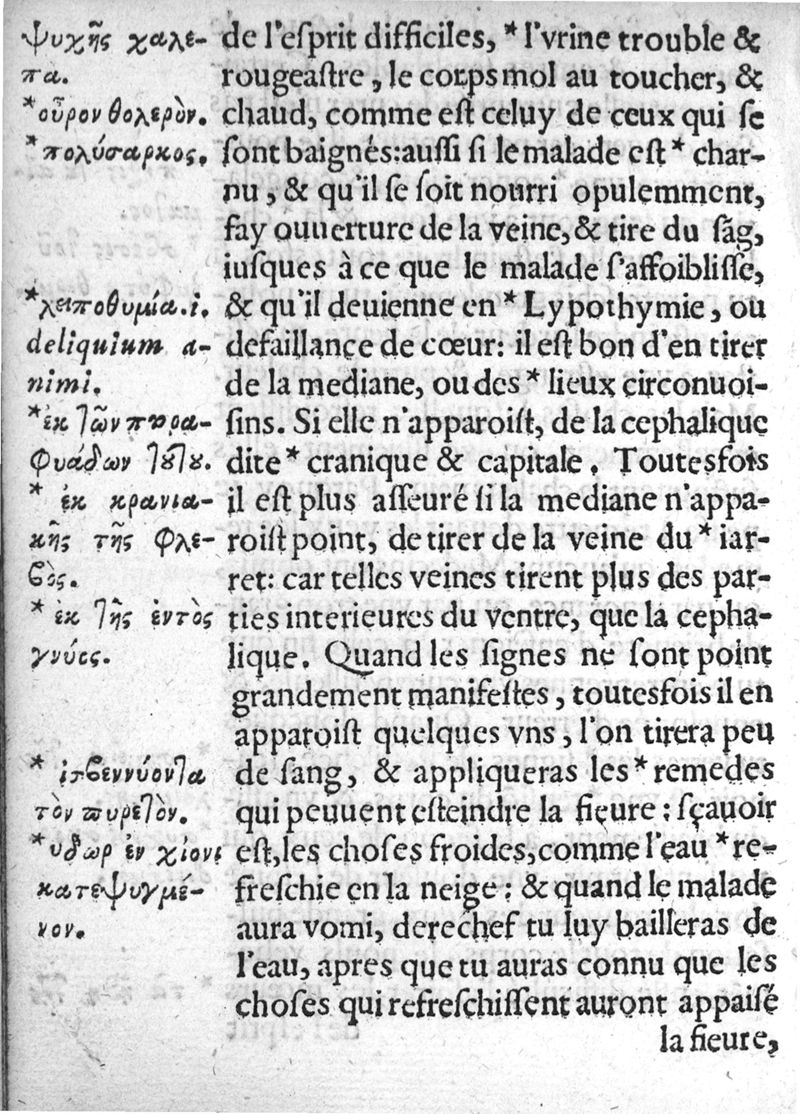 ψυχῆς χαλε-
πα.
*οὖρον θολερὸν.
*πολύσαρκος.
*λειποθυμία.i.
deliquium a-
nimi.
*ἐκ τῶν παρα-
φυάδων τούτου.
* ἐκ κρανια-
κῆς τῆς φλε-
βὸς.
* ἐκ τῆς ἐντὸς
γνύες.
τὸν πυρετὸν.
*υδωρ ἐν χίονι
κατεψυγμέ-
νον.
de l'eſprit difficiles, * l'vrine trouble &
rougeaſtre, le corps mol au toucher, &
chaud, comme eſt celuy de ceux qui ſe
ſont baignés: auſſi ſi le malade eſt * char-
nu, & qu'il ſe ſoit nourri opulemment,
fay ouuerture de la veine, & tire du ſãg,
iuſques à ce que le malade ſ'affoibliſſe,
& qu'il deuienne en * Lypothymie, ou
defaillance de cœur: il eſt bon d'en tirer
de la mediane, ou des * lieux circonuoi-
ſins. Si elle n'apparoiſt, de la cephalique
dite * cranique & capitale. Toutesfois
il eſt plus aſſeuré ſi la mediane n'appa-
roiſt point, de tirer de la veine du * iar-
ret: car telles veines tirent plus des par-
ties interieures du ventre, que la cepha-
lique. Quand les ſignes ne ſont point
grandement manifeſtes, toutesfois il en
apparoiſt quelques vns, l'on tirera peu
de ſang, & appliqueras les * remedes
qui peuuent eſteindre la fieure: ſçauoir
eſt, les choſes froides, comme l'eau * re-
freſchie en la neige: & quand le malade
aura vomi, derechef tu luy bailleras de
l'eau, apres que tu auras connu que les
choſes qui refreſchiſſent auront appaiſé
la fieure,